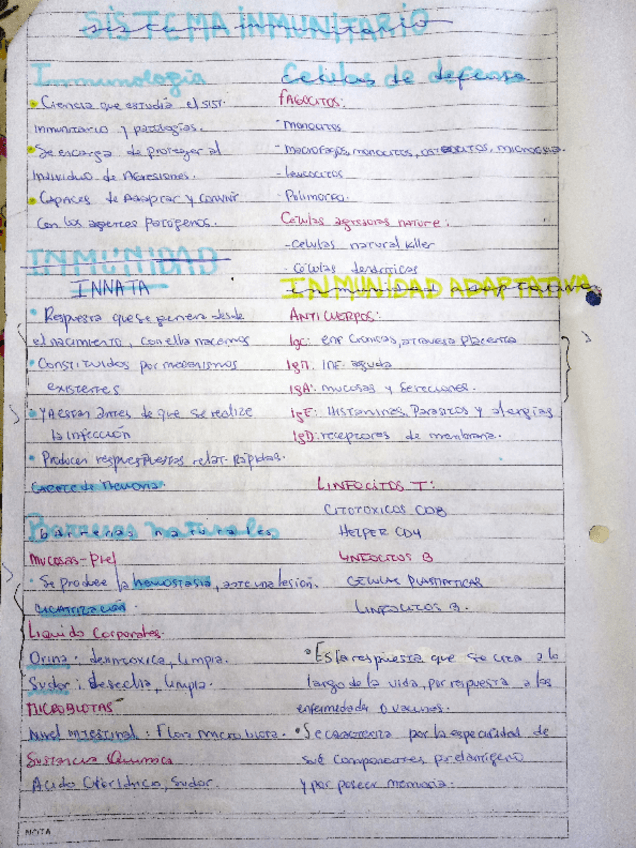 SISTEMA INMUNITARIO
Inmunología
• Ciencia que estudia el sist.
Inmunitario y patologías.
• Se encarga de proteger al
Individuo de Agresiones.
• Capaces de Adaptar y convivir
con los agentes patógenos.
INMUNIDAD
INNATA
• Respuesta que se genera desde
el nacimiento, con ella nacemos
• Constituidos por mecanismos
existentes
• Ya estan antes de que se realize
la infección
• Producen respuestas relat. Rápidas.
Carece de Memoria.
Barreras naturales
Mucosas-Piel
• Se produce la hemostasia, ante una lesión.
cicatrización.
Liquido Corporales.
Orina: desintoxica, limpia.
Sudor: desecha, limpia.
MICROBIOTAS
Nivel Intestinal: Flora microbiota.
Sustancia Química
Acido Clorídrico, Sudor.
Celulas de defensa
FAGOCITOS:
- Monocitos
- Macrofagos, monocitos, osteocitos, microglia.
- Leucocitos
- Polimorfo.
Celulas agresoras nature:
- celulas natural killer
- Células dendriticas
INMUNIDAD ADAPTATIVA
ANTICUERPOS:
IgG: enf Cronicas, atraviesa placenta
IgM: INF. aguda
IgA: mucosas y secreciones.
IgE: Histaminas, Parasitos y alergias
IgD: receptores de membrana.
LINFOCITOS T:
CITOTOXICOS CD8
HELPER CD4
LINFOCITOS B
CELULAS PLASMATICAS
LINFOCITOS B.
• Es la respuesta que se crea a lo
largo de la vida, por respuesta a las
enfermedad o vacunas.
• Se caracteriza por la especifidad de
sus componentes pre
y por poseer memoria.
NOTA